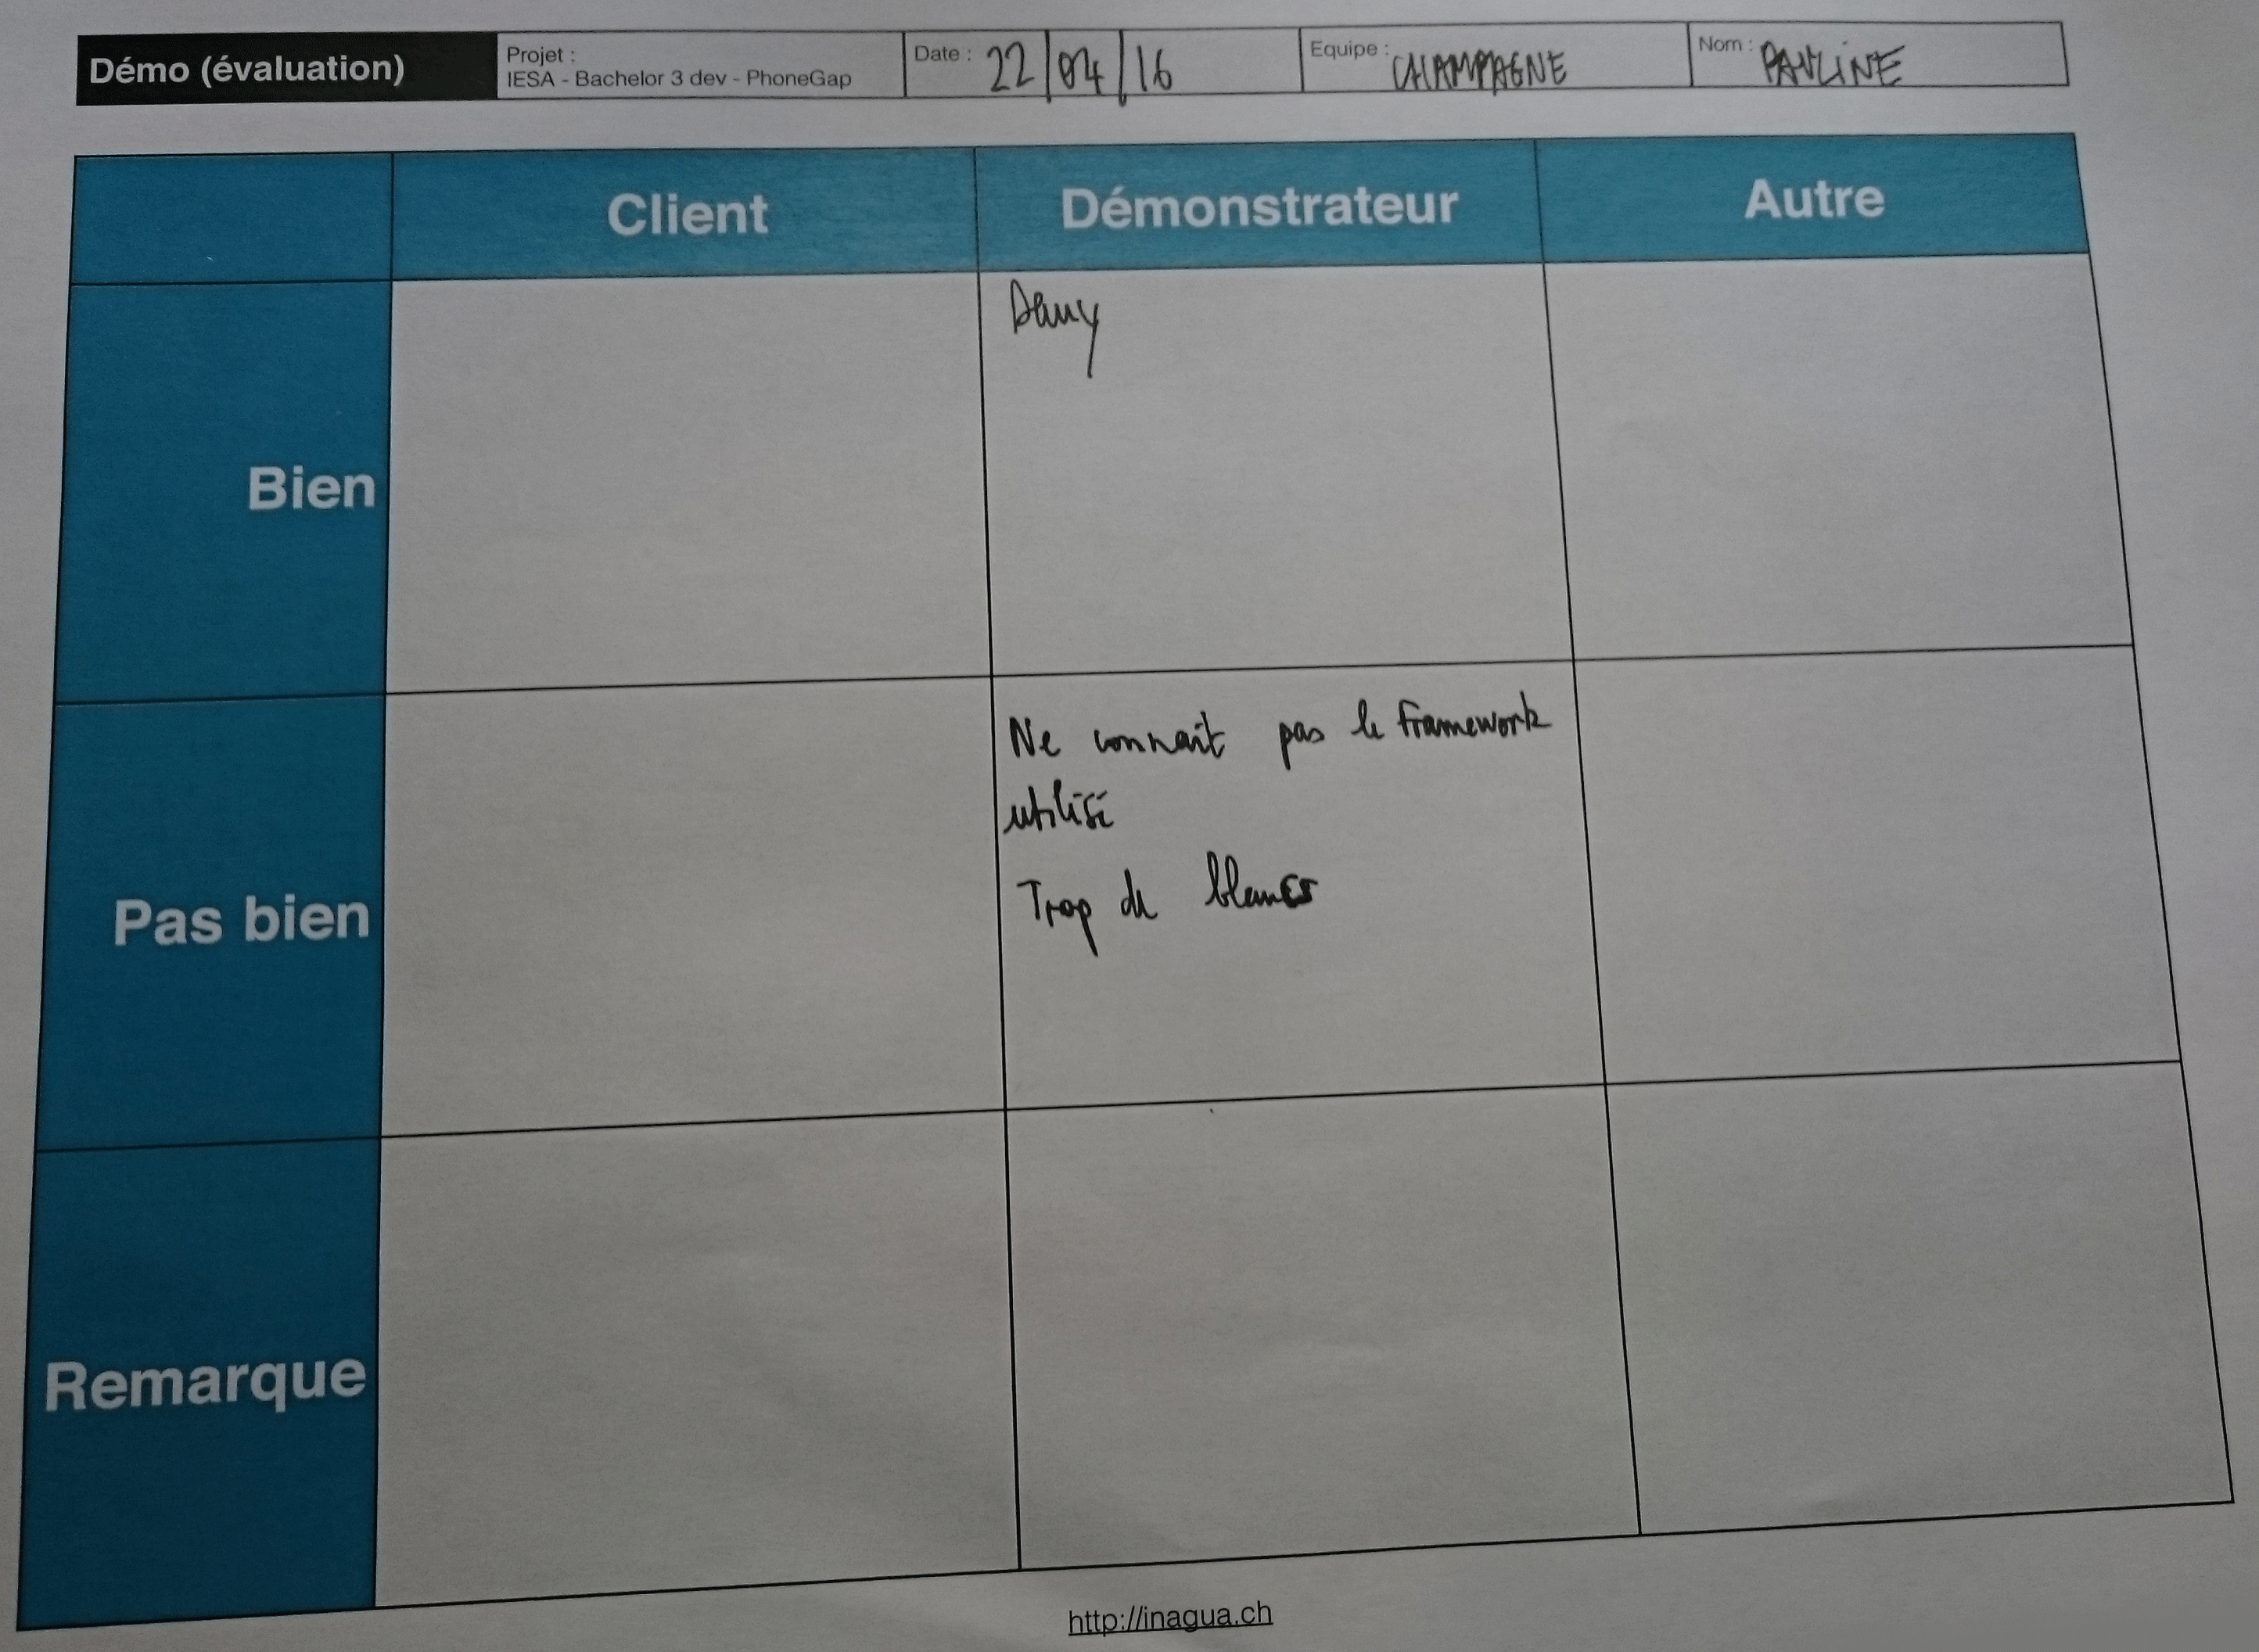 Démo (évaluation)
Projet :
IESA - Bachelor 3 dev - PhoneGap
Date : 22/04/16
Equipe : CHAMPAGNE
Nom : PAULINE
Client
Démonstrateur
Autre
Bien
Dany
Pas bien
Ne connaît pas le framework
utilisé
Trop de blancs
Remarque
http://inagua.ch